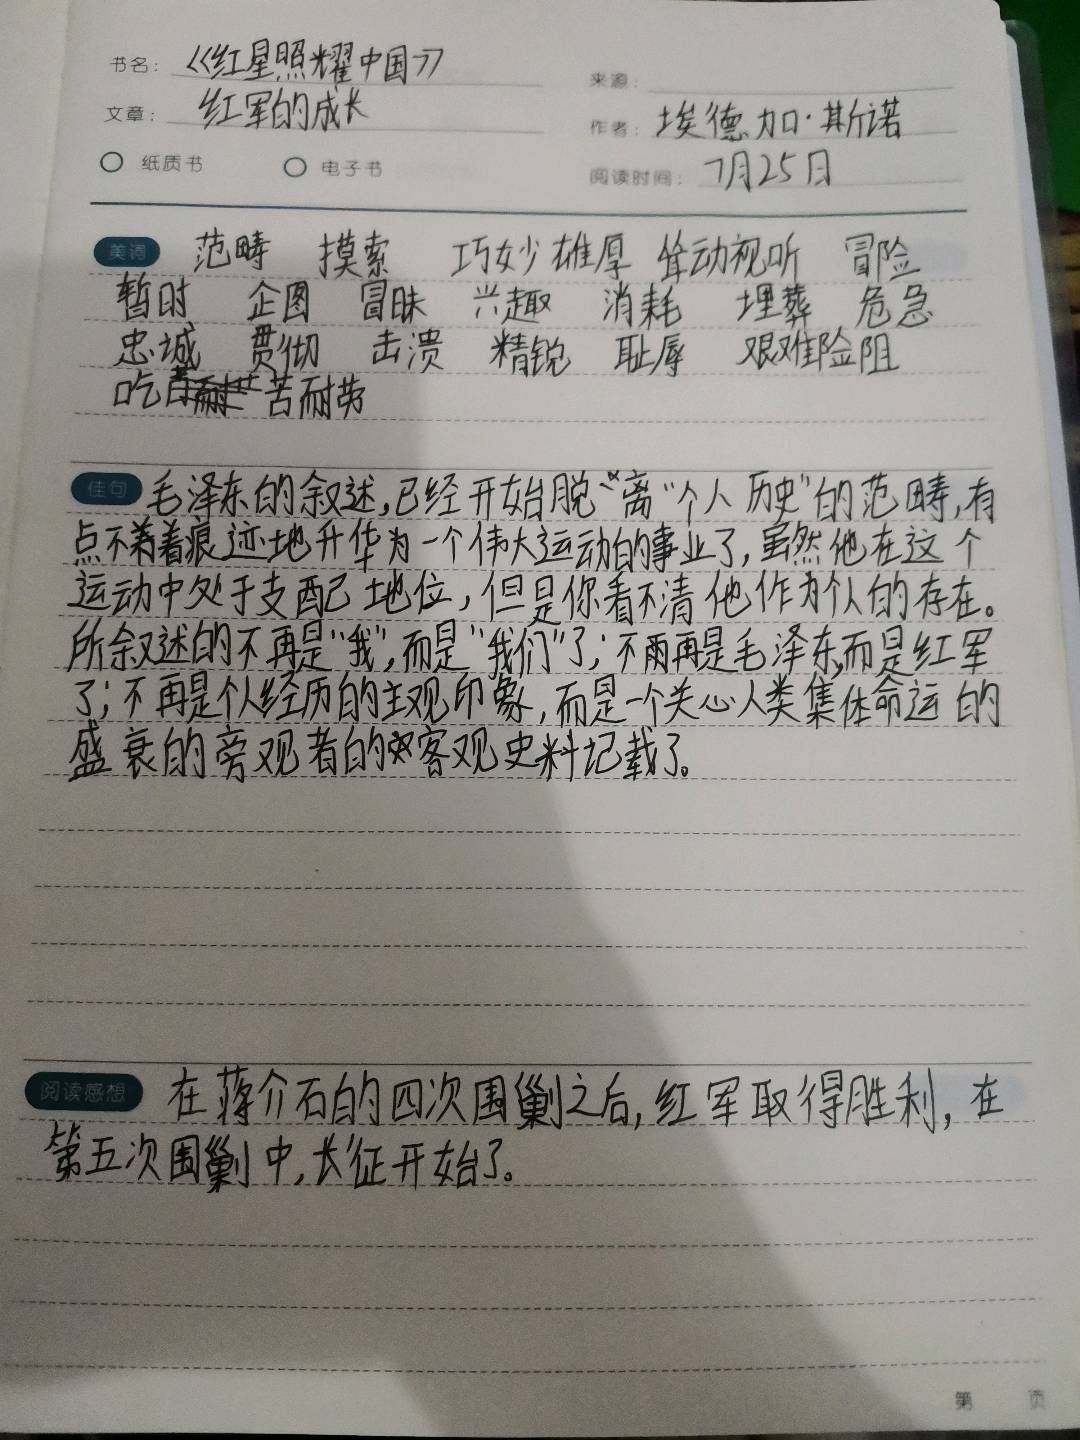 书名：《红星照耀中国》
来源：
文章：红军的成长
作者：埃德加·斯诺
纸质书 电子书
阅读时间：7月25日
美词 范畴 摸索 巧妙 雄厚 耸动视听 冒险
暂时 企图 冒昧 兴趣 消耗 埋葬 危急
忠诚 贯彻 击溃 精锐 耻辱 艰难险阻
吃苦耐劳
佳句 毛泽东的叙述,已经开始脱离“个人历史”的范畴,有
点不着痕迹地升华为一个伟大运动的事业了,虽然他在这个
运动中处于支配地位,但是你看不清他作为个人的存在。
所叙述的不再是“我”,而是“我们”了;不再是毛泽东,而是红军
了;不再是个人经历的主观印象,而是一个关心人类集体命运的
盛衰的旁观者的客观史料记载了。
阅读感想 在蒋介石的四次围剿之后,红军取得胜利,在
第五次围剿中,长征开始了。
第 页